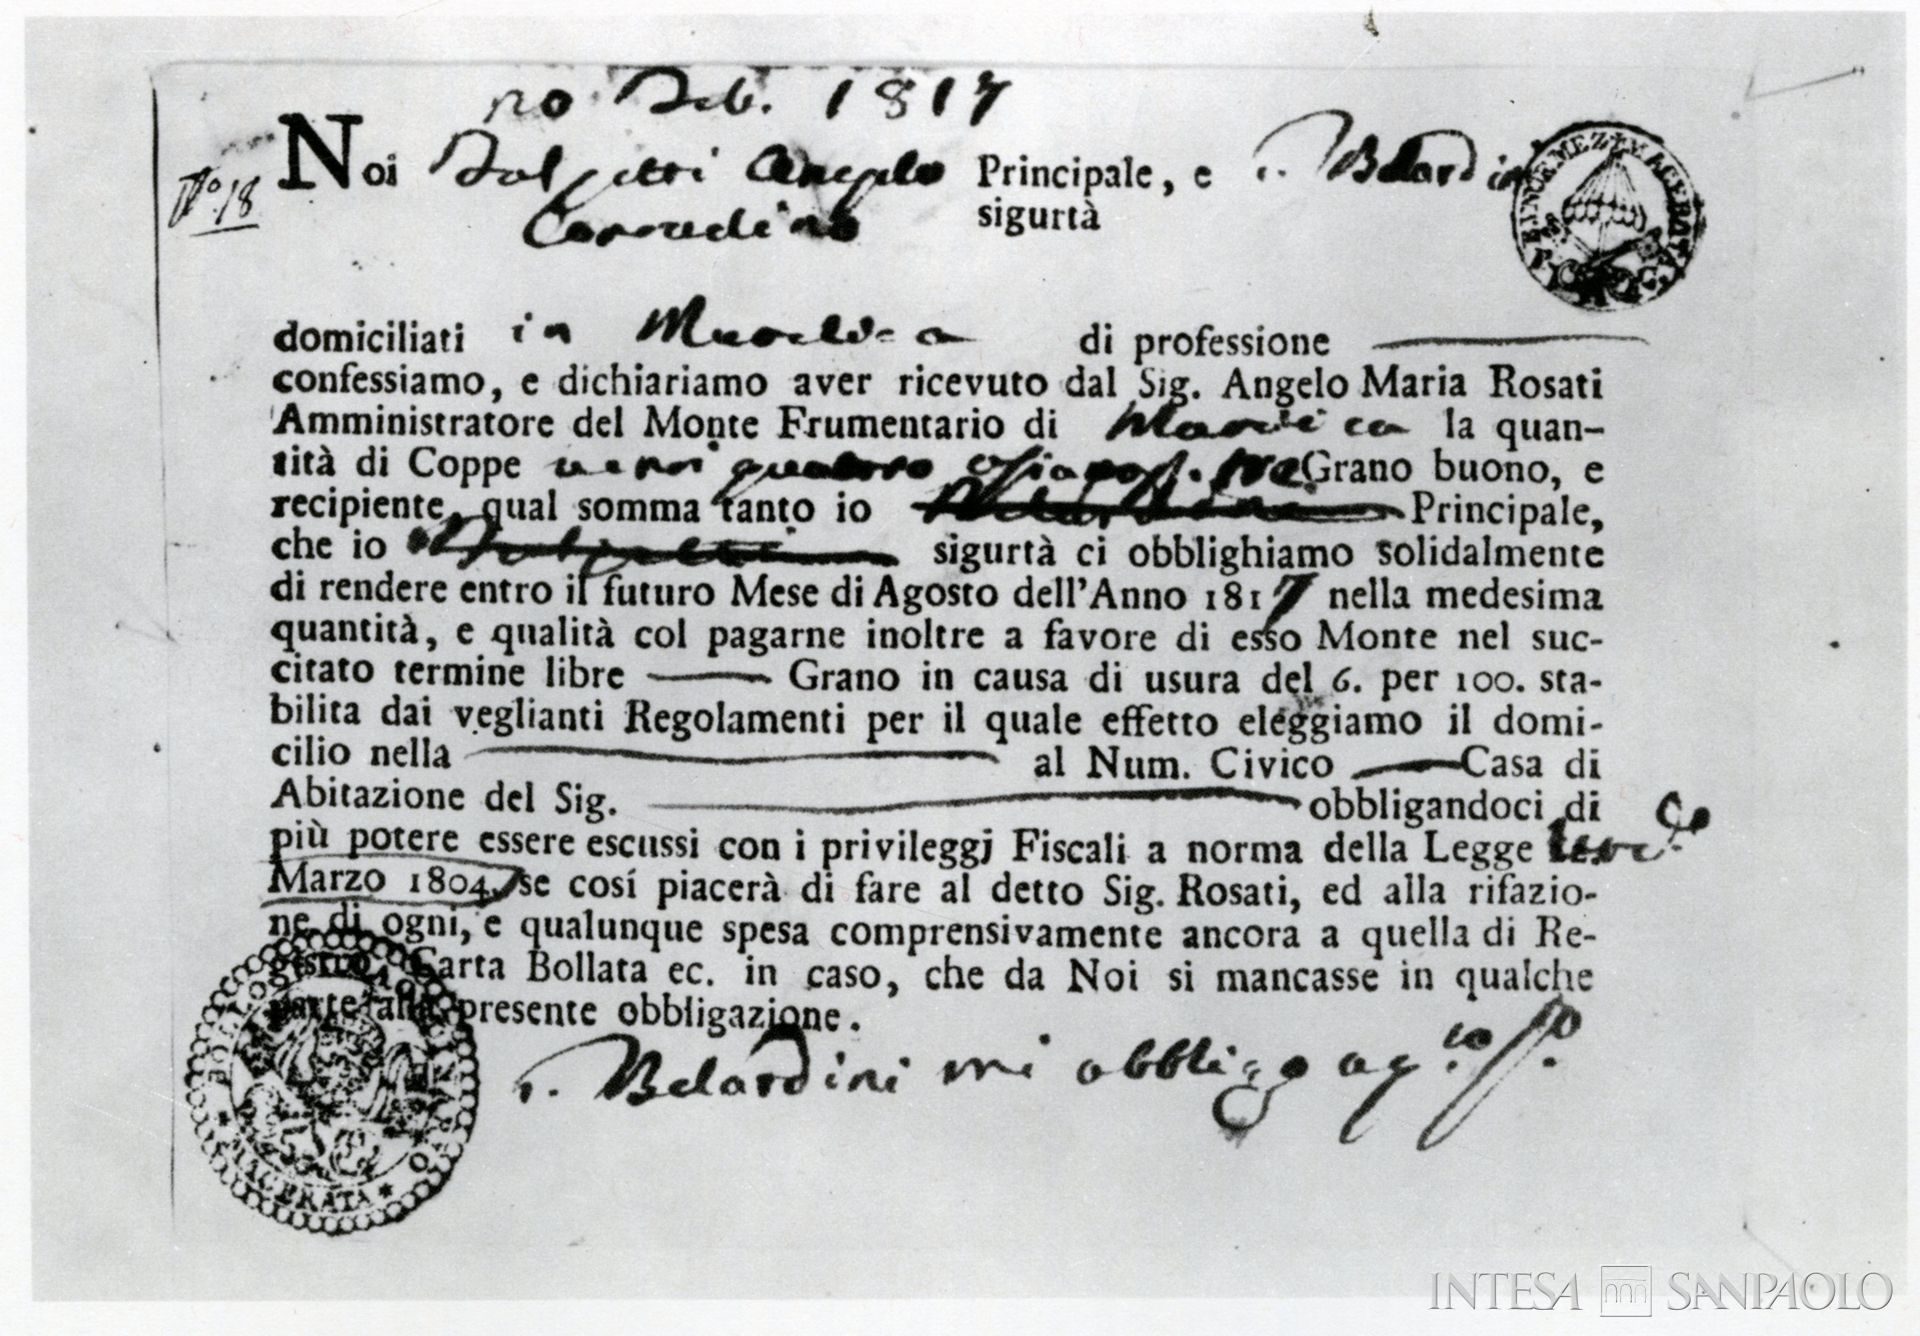 20 Feb. 1817
N.o 18
Noi Angelo Principale, e Belardini
Corradino sigurtà
domiciliati in di professione
confessiamo, e dichiariamo aver ricevuto dal Sig. Angelo Maria Rosati
Amministratore del Monte Frumentario di la quan-
tità di Coppe Grano buono, e
recipiente, qual somma tanto io Belardini Principale,
che io sigurtà ci obblighiamo solidalmente
di rendere entro il futuro Mese di Agosto dell'Anno 1817 nella medesima
quantità, e qualità col pagarne inoltre a favore di esso Monte nel suc-
citato termine libre Grano in causa di usura del 6. per 100. sta-
bilita dai veglianti Regolamenti per il quale effetto eleggiamo il domi-
cilio nella al Num. Civico Casa di
Abitazione del Sig. obbligandoci di
più potere essere escussi con i privileggj Fiscali a norma della Legge
Marzo 1804. se cosí piacerà di fare al detto Sig. Rosati, ed alla rifazio-
ne di ogni, e qualunque spesa comprensivamente ancora a quella di Re-
gistro, Carta Bollata ec. in caso, che da Noi si mancasse in qualche
parte alla presente obbligazione.
Belardini mi obbligo
MACERATA
INTESA SANPAOLO